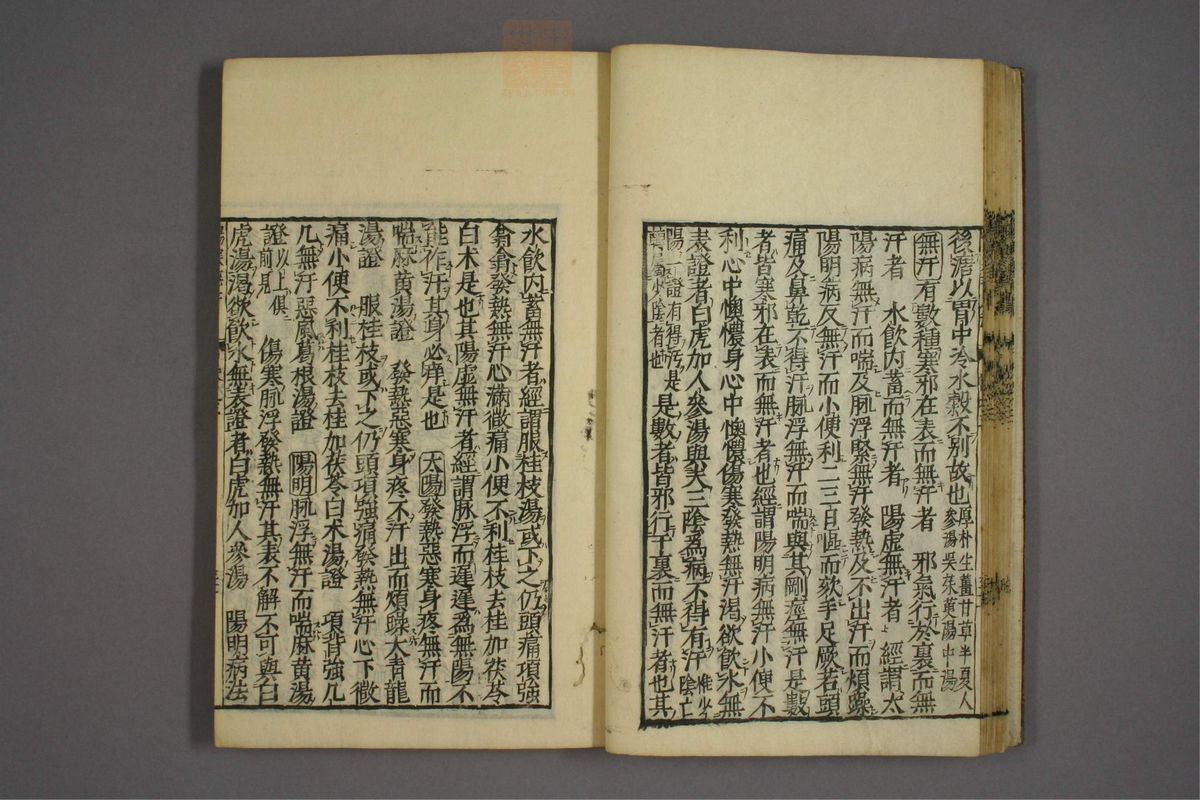 後溏以胃中冷水穀不別故也厚朴生薑甘草半夏人參湯吳茱萸湯中湯
無汗有數種寒邪在表而無汗者 邪氣行於裏而無
汗者 水飲内蓄而無汗者 陽虚無汗者 經謂太
陽病無汗而喘及脉浮緊無汗發熱及不出汗而煩躁
陽明病反無汗而小便利二三日嘔而欬手足厥若頭
痛及鼻乾不得汗脉浮無汗而喘與其剛痓無汗是數
者皆寒邪在表而無汗者也經謂陽明病無汗小便不
利心中懊憹身心中懊憹傷寒發熱無汗渴欲飲水無
表證者白虎加人參湯與夫三陰為病不得有汗惟少陰亡
陽一證有得汗者也是數者皆邪行于裏而無汗者也其
水飲内蓄無汗者經謂服桂枝湯或下之仍頭痛項強
翕翕發熱無汗心滿微痛小便不利桂枝去桂加茯苓
白术是也其陽虚無汗者經謂脉浮而遲遲為無陽不
能作汗其身必痒是也 太陽發熱惡寒身疼無汗而
喘麻黄湯證 發熱惡寒身疼不汗出而煩躁大青龍
湯證 服桂枝或下之仍頭項強痛發熱無汗心下微
痛小便不利桂枝去桂加茯苓白术湯證 項背強几
几無汗惡風葛根湯證 陽明脉浮無汗而喘麻黄湯
證以上俱前見 傷寒脉浮發熱無汗其表不解不可與白
虎湯渴欲飲水無表證者白虎加人參湯 陽明病法